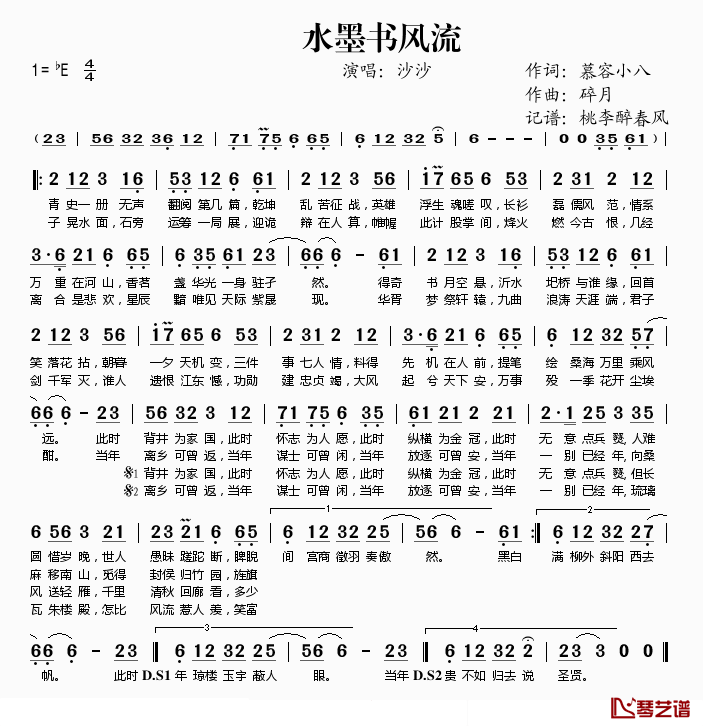 水墨书风流
1= ♭E 4/4
演唱：沙沙
作词：慕容小八
作曲：碎月
记谱：桃李醉春风
( 23 | 56 32 36 12 | 71 75 6 65 | 6 12 32 6 | 6 - - - | 0 0 35 61 )
2 12 3 16 | 53 12 6 61 | 2 12 3 56 | 17 65 6 23 | 2 12 3 61
青 史一 册 无声 翻阅 第几 篇，乾坤 乱 苦征 战，英雄 浮生 魂嗟 叹，长衫 磊 儒风 范，情系
子 晃水 面，石旁 运筹 一局 展，迎诡 辩 在人 算，帷幄 此计 股掌 间，烽火 燃 今古 恨，几经
3·6 21 6 65 | 6 35 61 23 | 66 6 - 61 | 2 12 3 16 | 53 12 6 61
万 重在 河山，香茗 盏 华光 一身 驻孑 然。 得奇 书 月空 悬，沂水 圯桥 与谁 缘，回首
离 合是悲 欢，星辰 黯 唯见 天际 紫晟 现。 华胥 梦 祭轩 辕，九曲 浪涛 天涯 端，君子
2 12 3 56 | 17 65 6 23 | 2 12 3 61 | 3·6 21 6 65 | 6 12 32 57
笑 落花 拈，朝春 一夕 天机 变，三件 事 七人 情，料得 先 机在 人前，提笔 绘 桑海 万里 乘风
剑 千军 灭，谁人 遗恨 江东 憾，功勋 建 忠贞 竭，大风 起 兮天 下安，万事 殁 一季 花开 尘埃
66 6 - 23 | 56 32 3 12 | 71 75 6 35 | 61 21 2 12 | 2·1 23 3 35
远。 此时 背井 为家 国，此时 怀志 为人 愿，此时 纵横 为金 冠，此时 无 意 点兵 燹，人难
酣。 当年 离乡 可曾 返，当年 谋士 可曾 闲，当年 放逐 可曾 安，当年 一 别 已经 年，向桑
𝄋1 背井 为家 国，此时 怀志 为人 愿，此时 纵横 为金 冠，此时 无 意 点兵 燹，但长
𝄋2 离乡 可曾 返，当年 谋士 可曾 闲，当年 放逐 可曾 安，当年 一 别 已经 年，琉璃
1 2
6 56 3 21 | 23 21 6 65 | 6 12 32 25 | 56 6 - 61 :| 6 12 32 27
圆 惜岁 晚，世人 愚昧 蹉跎 断，睥睨 间 宫商 徵羽 奏傲 然。 黑白 满 柳外 斜阳 西去
麻 移南 山，觅得 封侯 归竹 园，旌旗
风 送轻 雁，千里 清秋 回廊 看，多少
瓦 朱楼 殿，怎比 风流 惹人 羡，笑富
3 4
66 6 - 23 | 6 12 32 25 | 56 6 - 23 | 6 12 32 2 | 23 0 0
帆。 此时 D.S1 年 琼楼 玉宇 蔽人 眼。 当年 D.S2 贵 不如 归去 说 圣贤。
琴艺谱